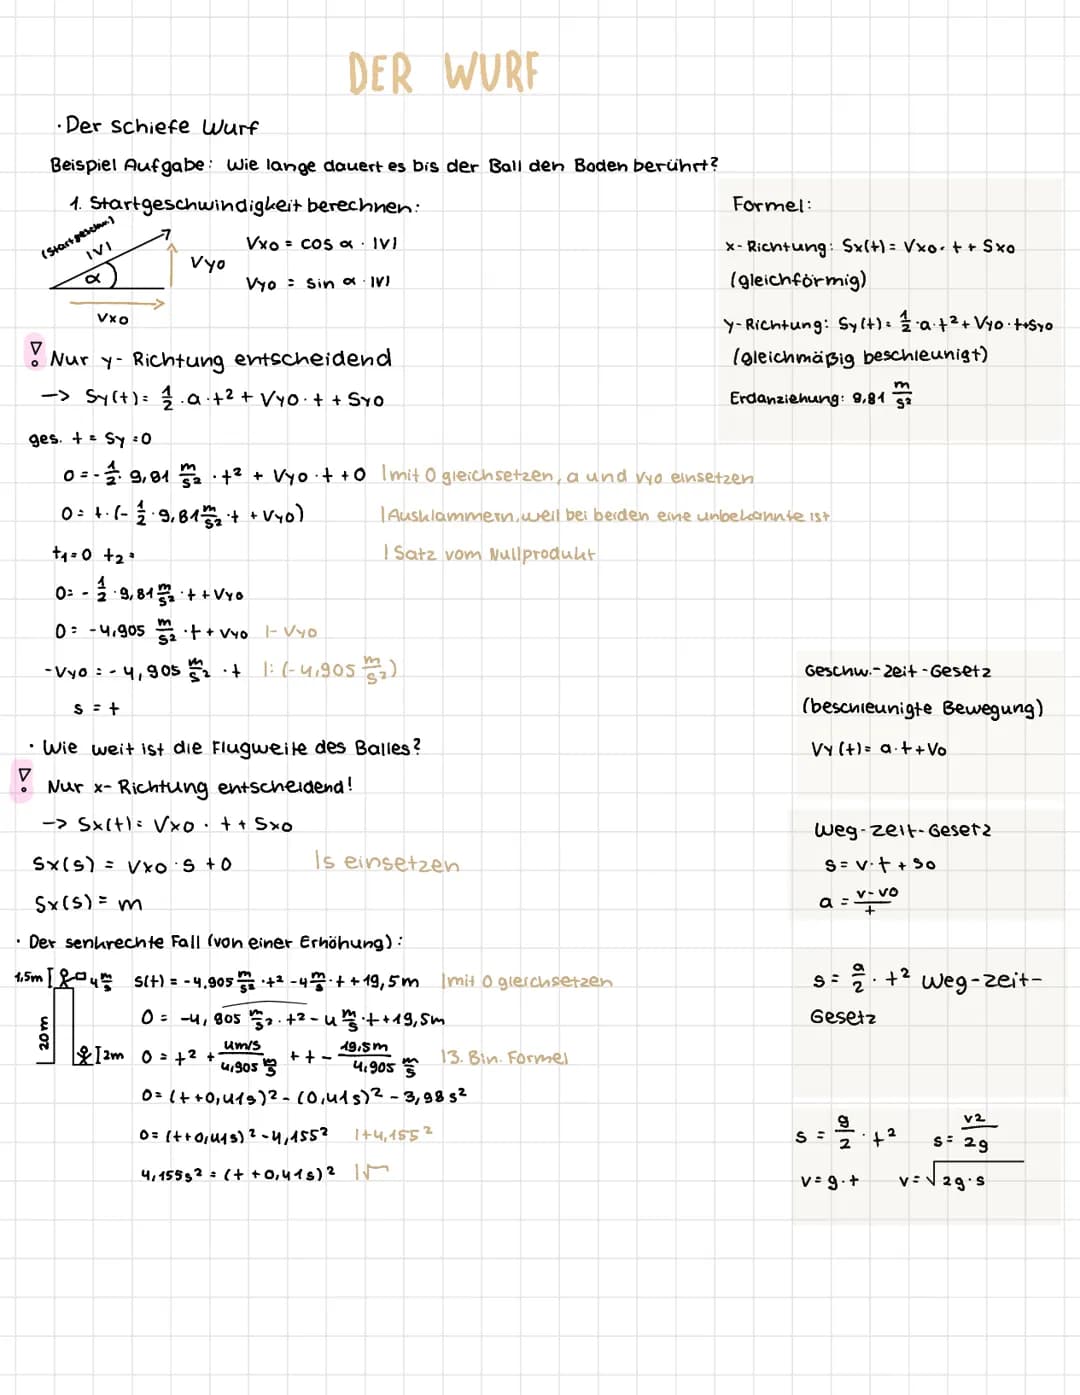 DER WURF
· Der schiefe Wurf
Beispiel Aufgabe: Wie lange dauert es bis der Ball den Boden berührt?
1. Startgeschwindigkeit berechnen:
(Startgeschw.)
|V|
α
Vyo
Vxo
Vxo = cos α · |V|
Vyo = sin α · |V|
Formel:
x-Richtung: Sx(t) = Vxo · t + Sxo
(gleichförmig)
y-Richtung: Sy(t) = 1/2 · a · t² + Vyo · t + Syo
(gleichmäßig beschleunigt)
Erdanziehung: 9,81 m/s²
! Nur y-Richtung entscheidend
-> Sy(t) = 1/2 · a · t² + Vyo · t + Syo
ges. t = Sy = 0
0 = - 1/2 · 9,81 m/s² · t² + Vyo · t + 0 | mit 0 gleichsetzen, a und Vyo einsetzen
0 = t · (- 1/2 · 9,81 m/s² · t + Vyo) | Ausklammern, weil bei beiden eine unbekannte ist
t1 = 0 t2 = | Satz vom Nullprodukt
0 = - 1/2 · 9,81 m/s² · t + Vyo
0 = -4,905 m/s² · t + Vyo |- Vyo
-Vyo = -4,905 m/s² · t |: (-4,905 m/s²)
s = t
Geschw.-Zeit-Gesetz
(beschleunigte Bewegung)
Vy(t) = a · t + Vo
· Wie weit ist die Flugweite des Balles?
! Nur x-Richtung entscheidend!
-> Sx(t) = Vxo · t + Sxo
Sx(s) = Vxo · s + 0 | s einsetzen
Sx(s) = m
Weg-Zeit-Gesetz
s = v · t + so
a = v-vo/t
· Der senkrechte Fall (von einer Erhöhung):
1,5m 4 m/s s(t) = -4,905 m/s² · t² - 4 m/s · t + 19,5m | mit 0 gleichsetzen
20m
0 = -4,905 m/s² · t² - 4 m/s · t + 19,5m
2m 0 = t² + 4m/s / 4,905 m/s · t + t - 19,5m / 4,905 m/s | 3. Bin. Formel
0 = (t + 0,41s)² - (0,41s)² - 3,98s²
0 = (t + 0,41s)² - 4,155² |+4,155²
4,155s² = (t + 0,41s)² |√
s = a/2 · t² Weg-Zeit-
Gesetz
s = g/2 · t² s = v2/2g
v = g · t v = √2g · s